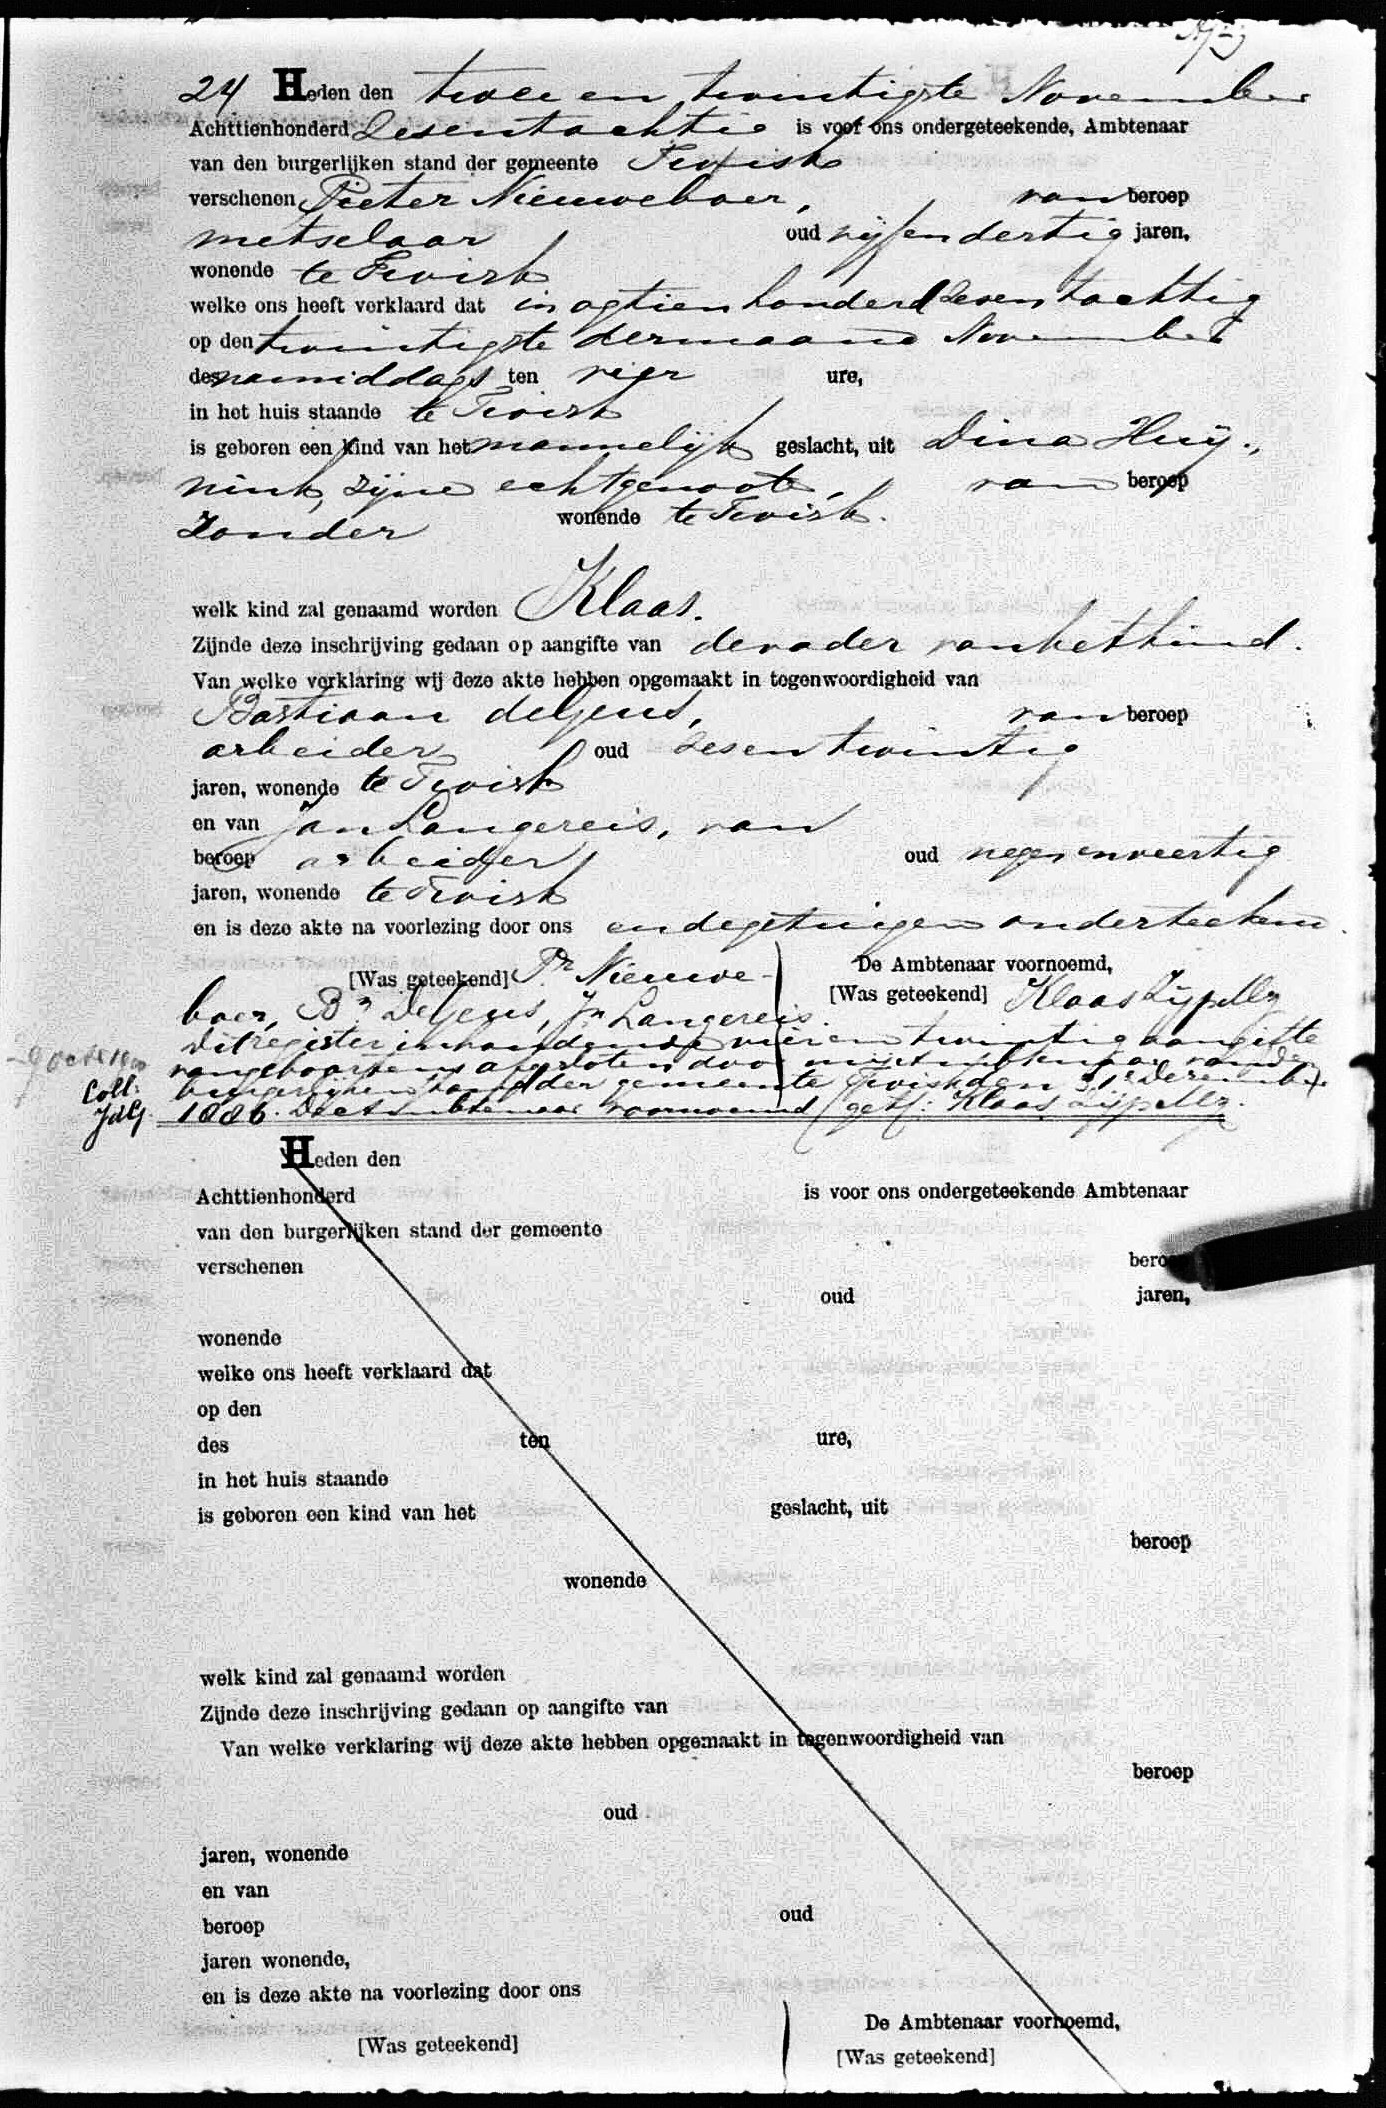 24 Heden den twee en twintigste November
Achttienhonderd Zesentachtig is voor ons ondergeteekende, Ambtenaar
van den burgerlijken stand der gemeente Twisk
verschenen Pieter Nieuweboer, van beroep
metselaar oud vijfendertig jaren,
wonende te Twisk
welke ons heeft verklaard dat in agtienhonderd zesentachtig
op den twintigste dermaand November
des namiddags ten vier ure,
in het huis staande te Twisk
is geboren een kind van het mannelijk geslacht, uit Dina Huij-
nink, zijne echtgenoote, van beroep
Zonder wonende te Twisk.
welk kind zal genaamd worden Klaas.
Zijnde deze inschrijving gedaan op aangifte van denvader vanhetkind.
Van welke verklaring wij deze akte hebben opgemaakt in tegenwoordigheid van
Bastiaan deGeus, van beroep
arbeider oud zesentwintig
jaren, wonende te Twisk
en van Jan Langereis, van
beroep arbeider, oud negenenveertig
jaren, wonende te Twisk
en is deze akte na voorlezing door ons en degetuigen onderteekend.
[Was geteekend] Pr Nieuwe- De Ambtenaar voornoemd,
boer, Bn DeGeus, Jn Langereis. [Was geteekend] Klaas Zijp Mz
Dit register inhoudende vierentwintig aangifte
van geboorten is afgesloten door mij Ambtenaar van de
Coll: burgerlijken stand der gemeente Twisk den 31e December
JdG 1886. De Ambtenaar voornoemd (get.: Klaas Zijp Mz.
Heden den
Achttienhonderd is voor ons ondergeteekende Ambtenaar
van den burgerlijken stand der gemeente
verschenen beroep
oud jaren,
wonende
welke ons heeft verklaard dat
op den
des ten ure,
in het huis staande
is geboren een kind van het geslacht, uit
beroep
wonende
welk kind zal genaamd worden
Zijnde deze inschrijving gedaan op aangifte van
Van welke verklaring wij deze akte hebben opgemaakt in tegenwoordigheid van
beroep
oud
jaren, wonende
en van
beroep oud
jaren wonende,
en is deze akte na voorlezing door ons
De Ambtenaar voornoemd,
[Was geteekend] [Was geteekend]